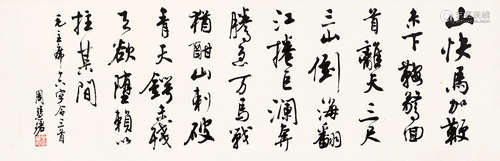 山快馬加鞭
未下鞍驚回
首離天三尺
三山倒海翻
江捲巨瀾奔
騰急万馬戰
猶酣山刺破
青天鍔未殘
天欲墮賴以
拄其間
毛主席十六字令三首
周慧珺